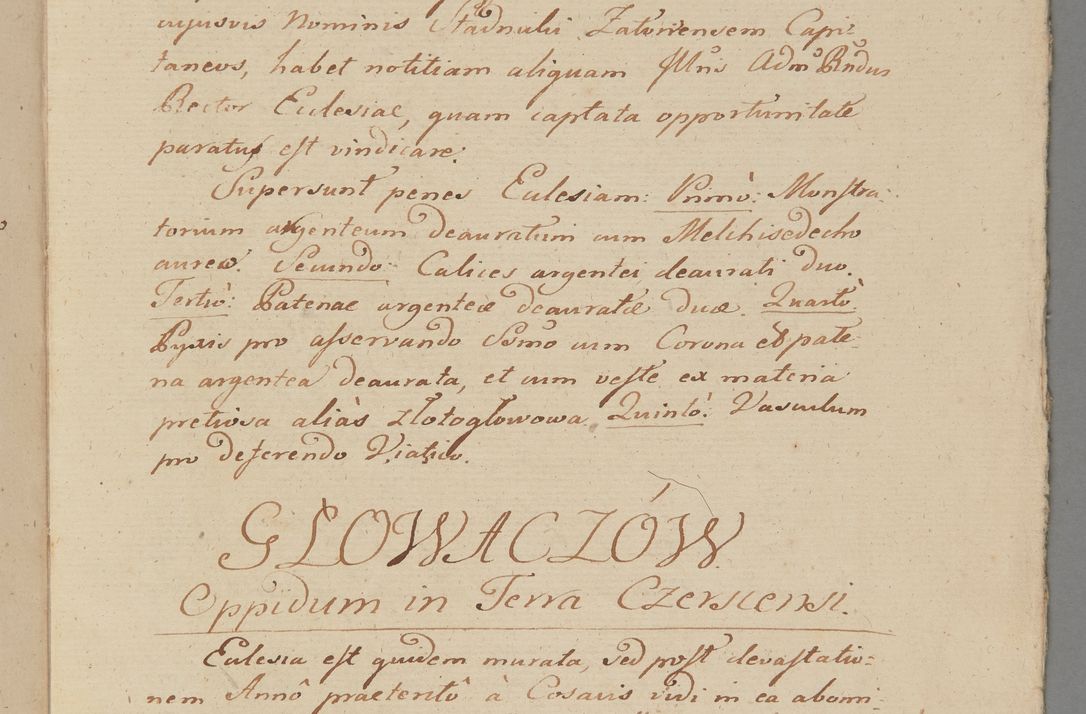 cujusvis Nominis Stadnicki Zatoriensem Capi-
taneos, habet notitiam aliquam Illris Admˢ Rndus
Rector Ecclesiae, quam captata opportunitate
paratus est vindicare.
Supersunt penes Ecclesiam: Primò: Monstra-
torium argenteum deauratum cum Melchisedecho
aureo. Secundo Calices argentei deaurati duo.
Tertiò: Patenae argenteæ deauratæ duæ. Quartò
Pyxis pro asservando Ssmo cum Corona et pate-
na argentea deaurata, et cum veste ex materia
pretiosa aliàs złotogłowowa. Quintò: Vasculum
pro deferendo Viatico.
GŁOWACZÓW
Oppidum in Terra Czerscensi.
Ecclesia est quidem murata, sed post devastatio-
nem Annô praeteritô à Cosacis vidi in ea abomi-